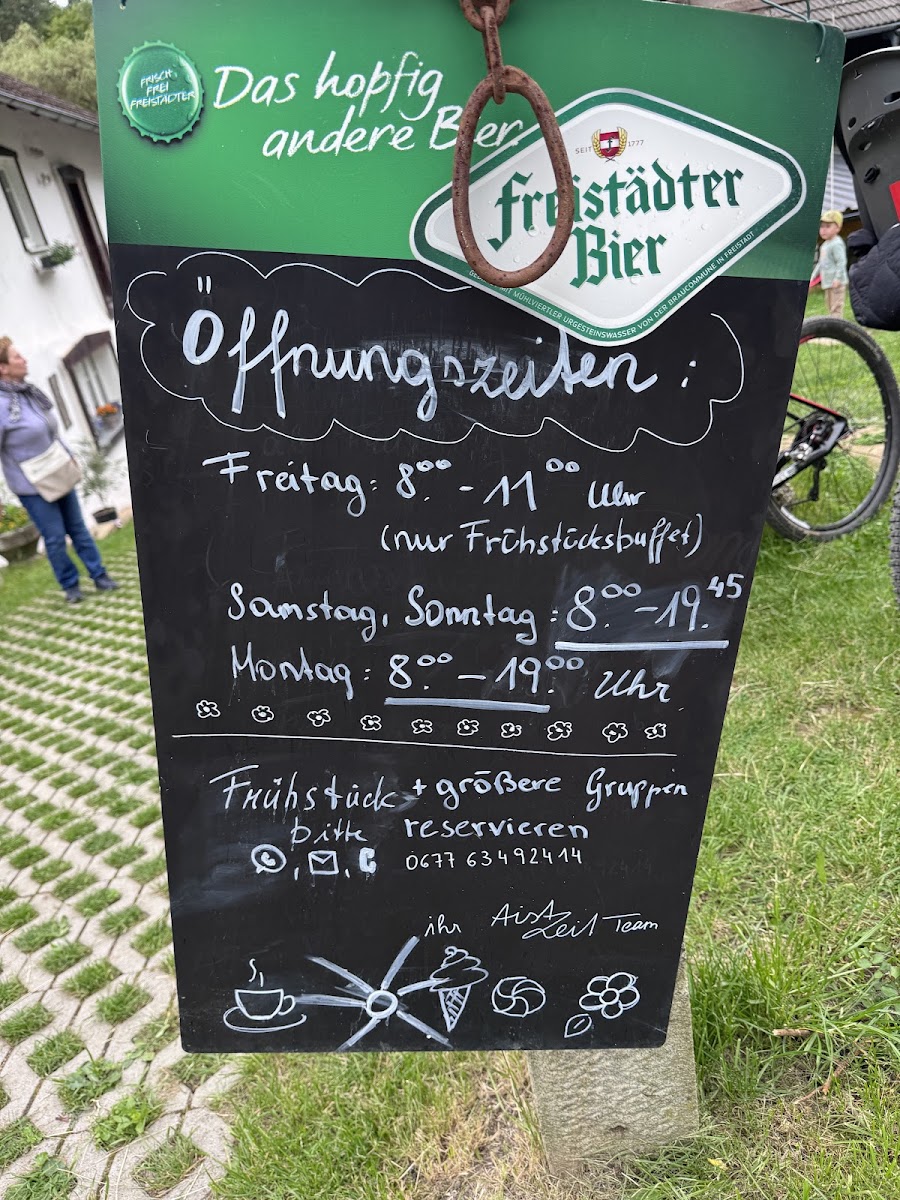 FRISCH,
FREI
FREISTÄDTER
Das hopfig
andere Bier.
SEIT 1777
freistädter
Bier
MIT MÜHLVIERTLER URGESTEINSWASSER VON DER BRAUCOMMUNE IN FREISTADT
Öffnungszeiten:
Freitag: 8.⁰⁰ - 11⁰⁰ Uhr
(nur Frühstücksbuffet)
Samstag, Sonntag: 8.⁰⁰ - 19.⁴⁵
Montag: 8.⁰⁰ - 19.⁰⁰ Uhr
Frühstück + größere Gruppen
bitte reservieren
0677 63492414
ihr AistZeit Team